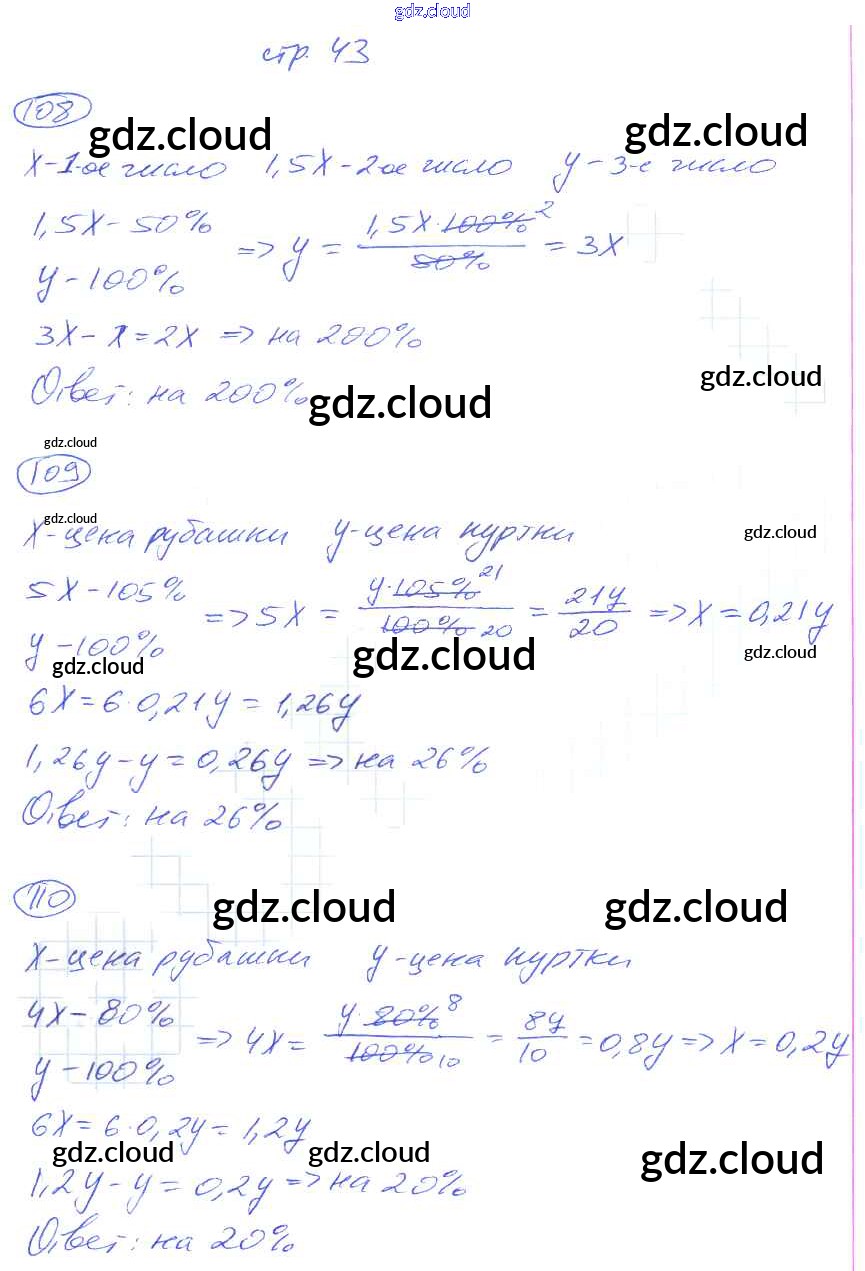 gdz.cloud
стр. 43
108
gdz.cloud gdz.cloud
X-1-ое число 1,5X-2-ое число y-3-е число
1,5X-50%
y-100%
=> y = 1,5X·100% 2 / 50% = 3X
3X-X=2X => на 200%
gdz.cloud
Ответ: на 200%
gdz.cloud
gdz.cloud
109
gdz.cloud
X-цена рубашки y-цена куртки
gdz.cloud
5X-105%
y-100%
=> 5X = y·105% 21 / 100% 20 = 21y / 20 => X=0,21y
gdz.cloud gdz.cloud gdz.cloud
6X=6·0,21y=1,26y
1,26y-y=0,26y => на 26%
Ответ: на 26%
110
gdz.cloud gdz.cloud
X-цена рубашки y-цена куртки
4X-80%
y-100%
=> 4X = y·80% 8 / 100% 10 = 8y / 10 = 0,8y => X=0,2y
6X=6·0,2y=1,2y
gdz.cloud gdz.cloud gdz.cloud
1,2y-y=0,2y => на 20%
Ответ: на 20%